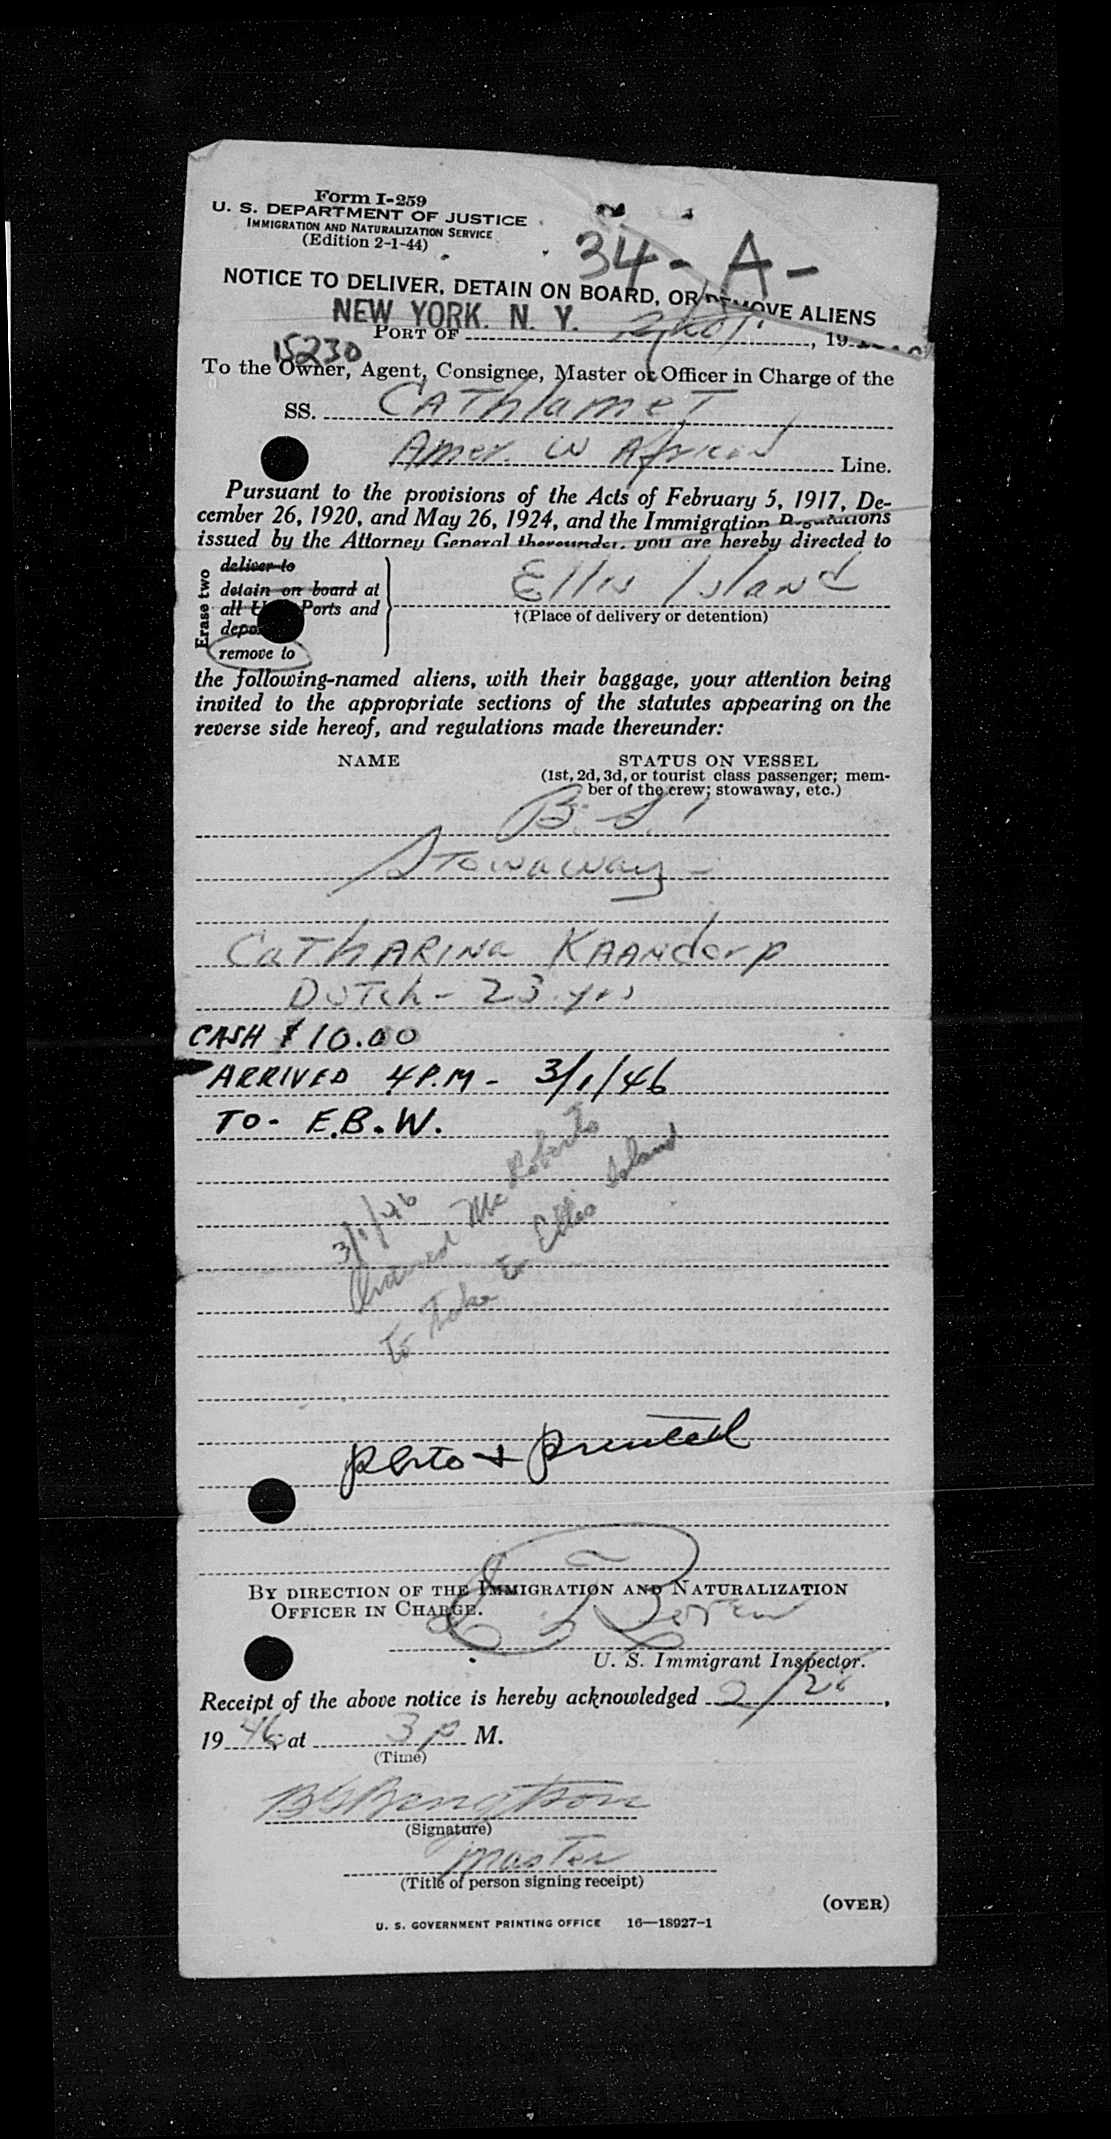 Form I-259
U. S. DEPARTMENT OF JUSTICE
IMMIGRATION AND NATURALIZATION SERVICE
(Edition 2-1-44)
34-A-
NOTICE TO DELIVER, DETAIN ON BOARD, OR REMOVE ALIENS
NEW YORK. N. Y.
PORT OF , 19
15230
To the Owner, Agent, Consignee, Master or Officer in Charge of the
SS. CAThlameT
Amer. W African Line.
Pursuant to the provisions of the Acts of February 5, 1917, De-
cember 26, 1920, and May 26, 1924, and the Immigration Regulations
issued by the Attorney General thereunder, you are hereby directed to
Erase two
deliver to
detain on board at
all U Ports and
depo
remove to
Ellis Island
†(Place of delivery or detention)
the following-named aliens, with their baggage, your attention being
invited to the appropriate sections of the statutes appearing on the
reverse side hereof, and regulations made thereunder:
NAME STATUS ON VESSEL
(1st, 2d, 3d, or tourist class passenger; mem-
ber of the crew; stowaway, etc.)
B. S. I
Stowaway -
CaThARINa KAANdorp
DuTch - 23 yrs
CASH $10.00
ARRIVED 4 P.M - 3/1/46
TO - E.B.W.
3/1/46
Ordered McRoberts
to Take to Ellis Island
photo + printed
BY DIRECTION OF THE IMMIGRATION AND NATURALIZATION
OFFICER IN CHARGE.
U. S. Immigrant Inspector.
Receipt of the above notice is hereby acknowledged 2/26,
1946, at 3 p M.
(Time)
BG Bengtson
(Signature)
master
(Title of person signing receipt)
(OVER)
U. S. GOVERNMENT PRINTING OFFICE 16—18927-1